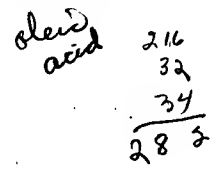 oleic
acid
216
32
34
282